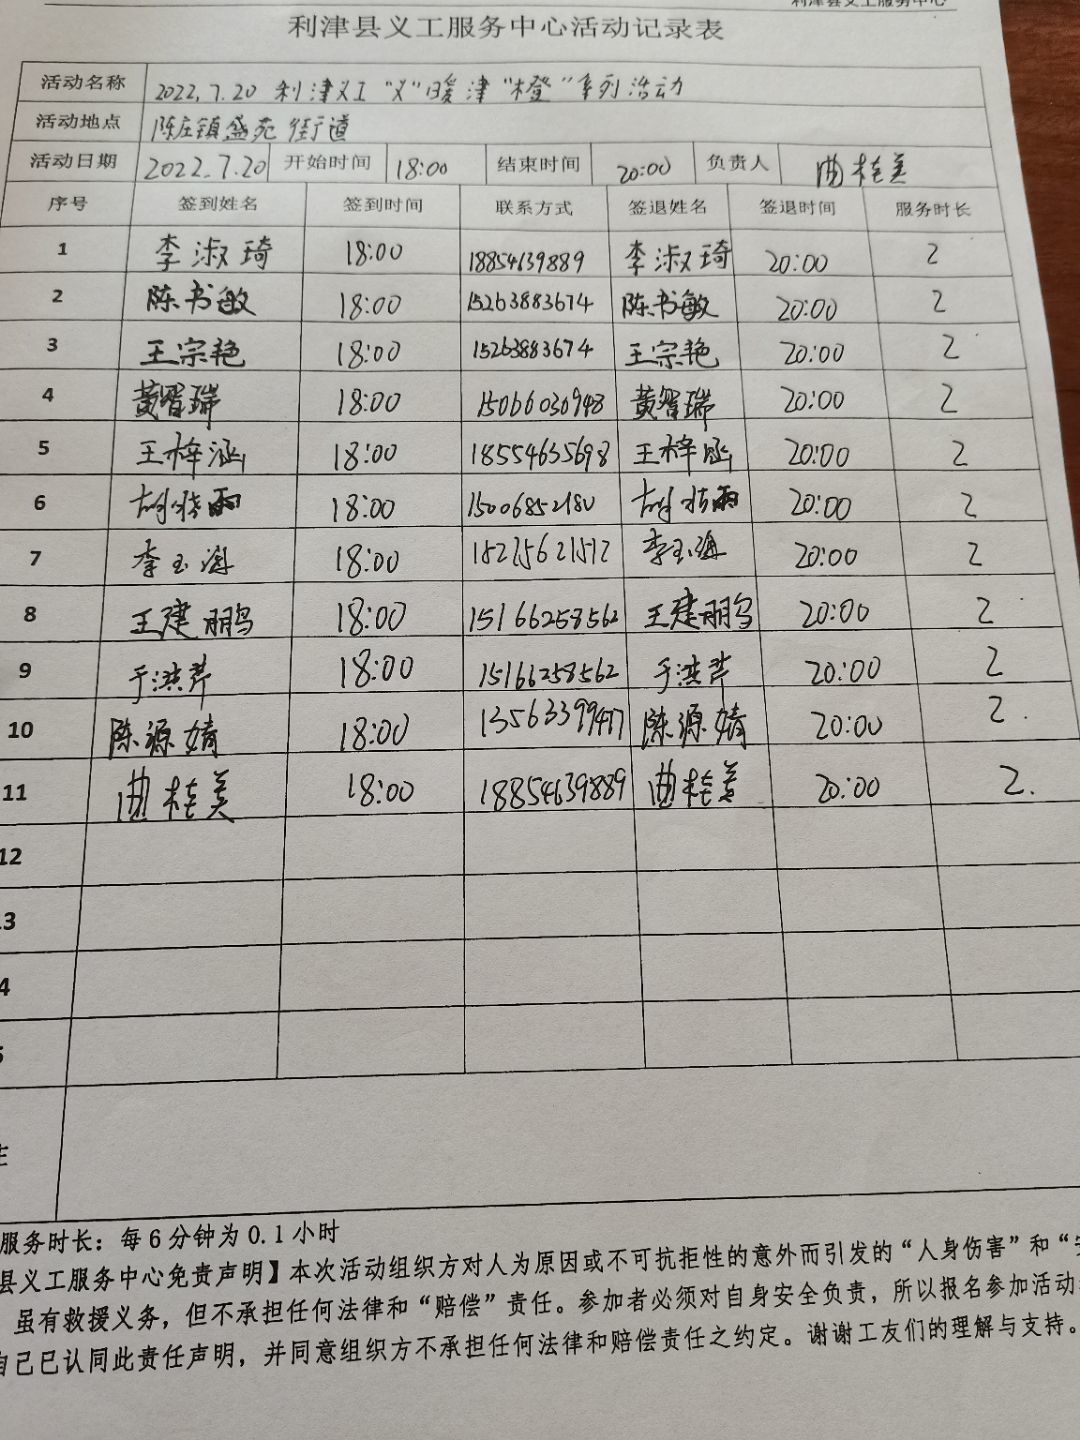 利津县义工服务中心
利津县义工服务中心活动记录表
活动名称 2022.7.20 利津义工“义”暖津“橙”系列活动
活动地点 陈庄镇盛苑街道
活动日期 2022.7.20 开始时间 18:00 结束时间 20:00 负责人 曲桂美
序号 签到姓名 签到时间 联系方式 签退姓名 签退时间 服务时长
1 李淑琦 18:00 18854639889 李淑琦 20:00 2
2 陈书敏 18:00 15263883674 陈书敏 20:00 2
3 王宗艳 18:00 15263883674 王宗艳 20:00 2
4 黄智瑞 18:00 15066030948 黄智瑞 20:00 2
5 王梓涵 18:00 18554635698 王梓涵 20:00 2
6 18:00 15006852180 20:00 2
7 李玉海 18:00 李玉海 20:00 2
8 王建鹏 18:00 15166258562 王建鹏 20:00 2
9 于洪芹 18:00 15166258562 于洪芹 20:00 2
10 陈源婧 18:00 陈源婧 20:00 2.
11 曲桂美 18:00 18854639889 曲桂美 20:00 2.
12
3
4
服务时长：每6分钟为0.1小时
县义工服务中心免责声明】本次活动组织方对人为原因或不可抗拒性的意外而引发的“人身伤害”和“
虽有救援义务，但不承担任何法律和“赔偿”责任。参加者必须对自身安全负责，所以报名参加活动
自己已认同此责任声明，并同意组织方不承担任何法律和赔偿责任之约定。谢谢工友们的理解与支持。